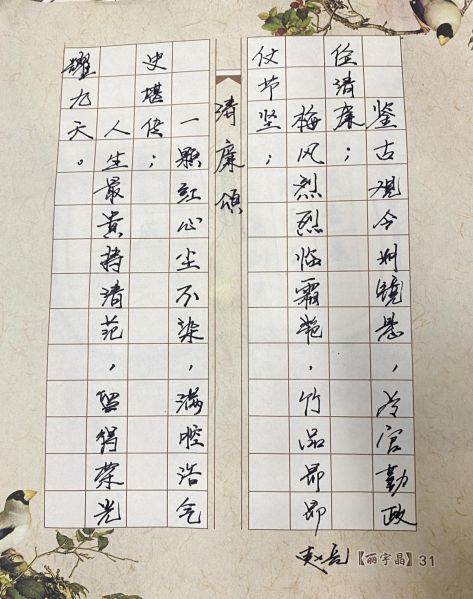 鉴古观今明镜悬，为官勤政
俭清廉；
梅风烈烈临霜艳，竹品昂昂
仗节坚；
清廉颂
一颗红心尘不染，满腔浩气
史堪传；
人生最贵持清范，留得荣光
耀九天。
【丽宇晶】31